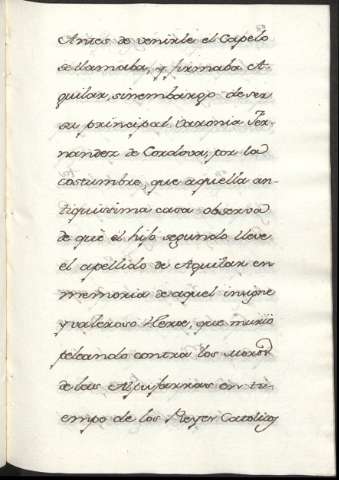 Antes de venirle el Capelo
se llamaba, y firmaba A-
guilar, sinembargo de ser
su principal varonia Fer-
nandez de Cordova, por la
costumbre, que aquella an-
tiquissima casa observa
de què el hijo segundo lleve
el apellido de Aquilar en
memoria de aquel insigne
y valeroso Heroe, que muriò
peleando contra los Moros
de las Alpujarras en ti-
empo de los Reyes Catolicos